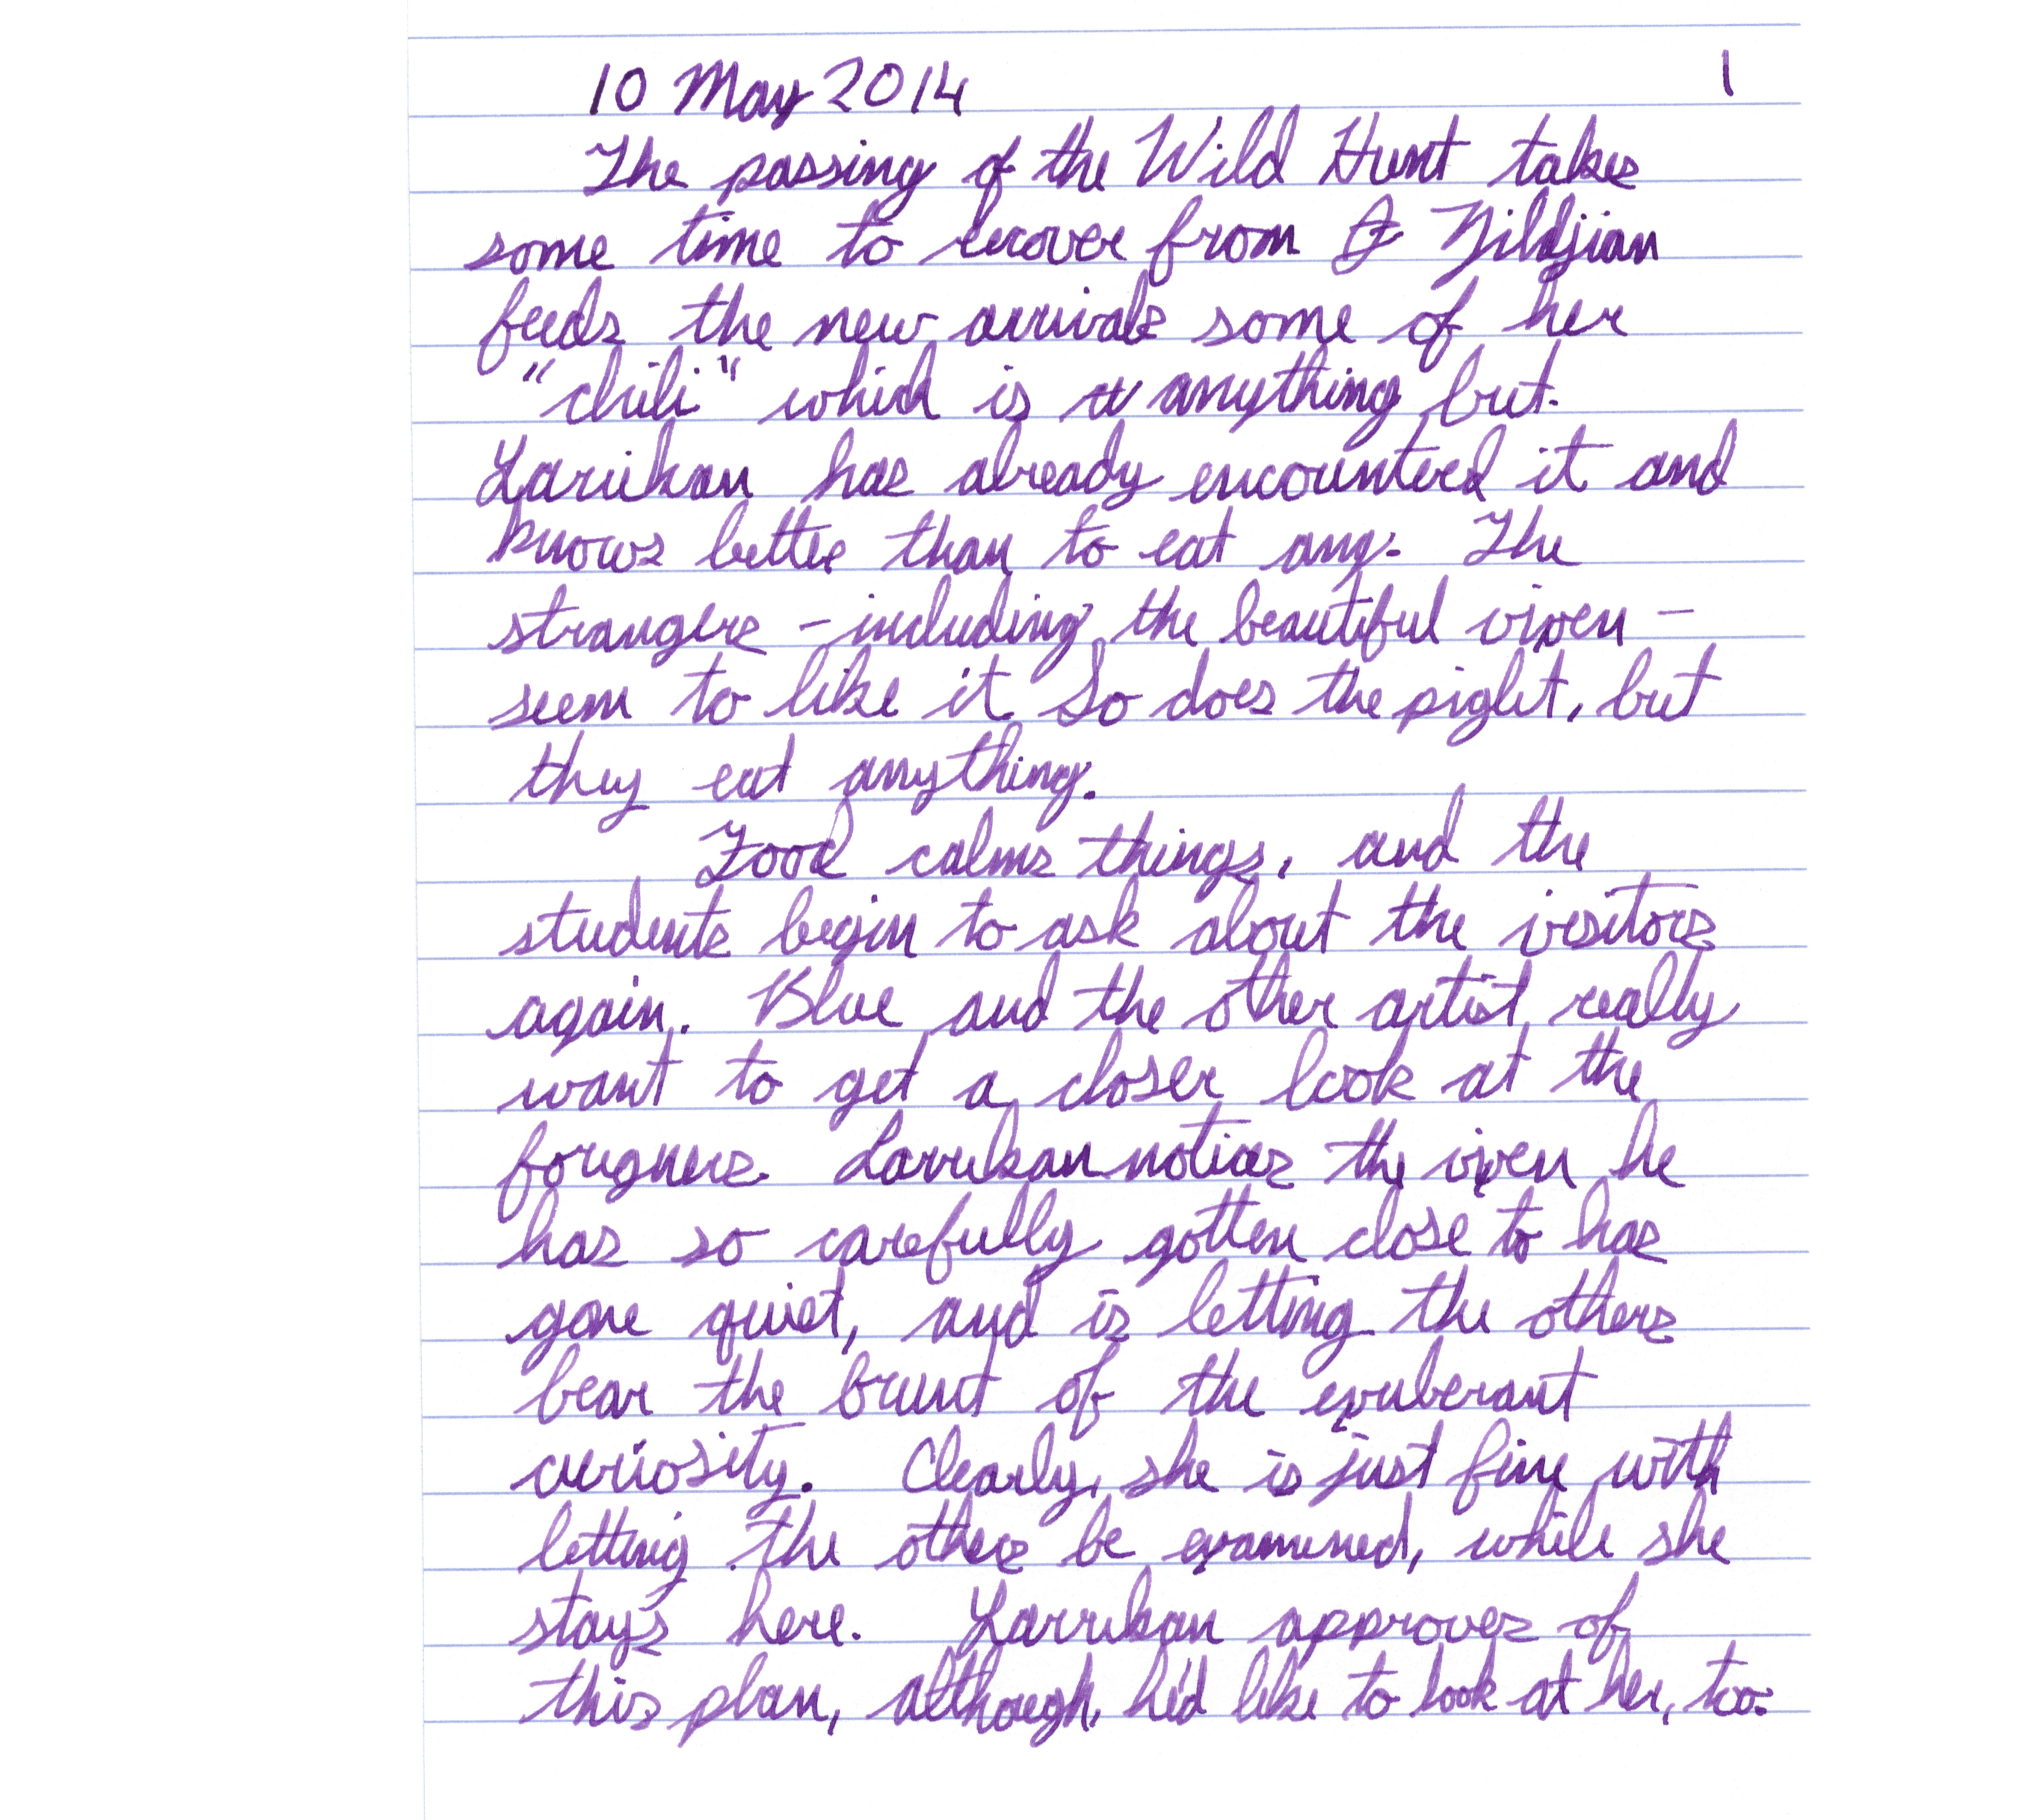 10 May 2014 1
The passing of the Wild Hunt takes
some time to recover from Zildjian
feeds the new arrivals some of her
"chili" which is anything but.
Larrikan has already encountered it and
knows better than to eat any. The
strangers - including the beautiful vixen -
seem to like it So does the pight, but
they eat anything.
Food calms things, and the
students begin to ask about the visitors
again. Blue and the other artist really
want to get a closer look at the
foreigners. Larrikan notices the vixen he
has so carefully gotten close to has
gone quiet, and is letting the others
bear the brunt of the exuberant
curiosity. Clearly, she is just fine with
letting the others be examined, while she
stays here. Larrikan approves of
this plan, although he'd like to look at her, too.